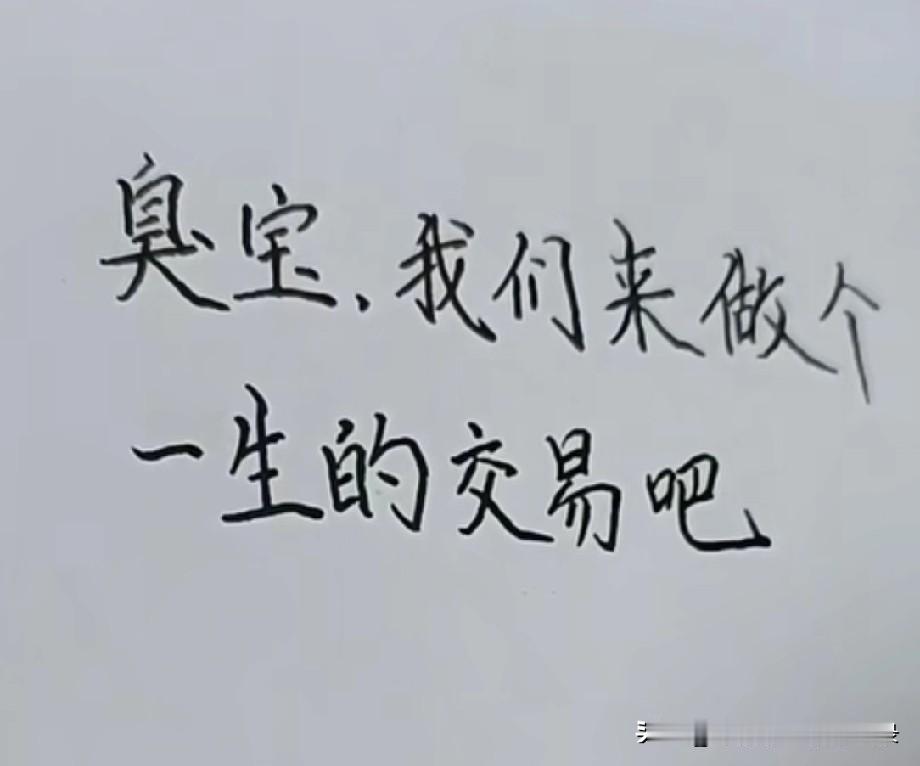 臭宝,我们来做个
一生的交易吧